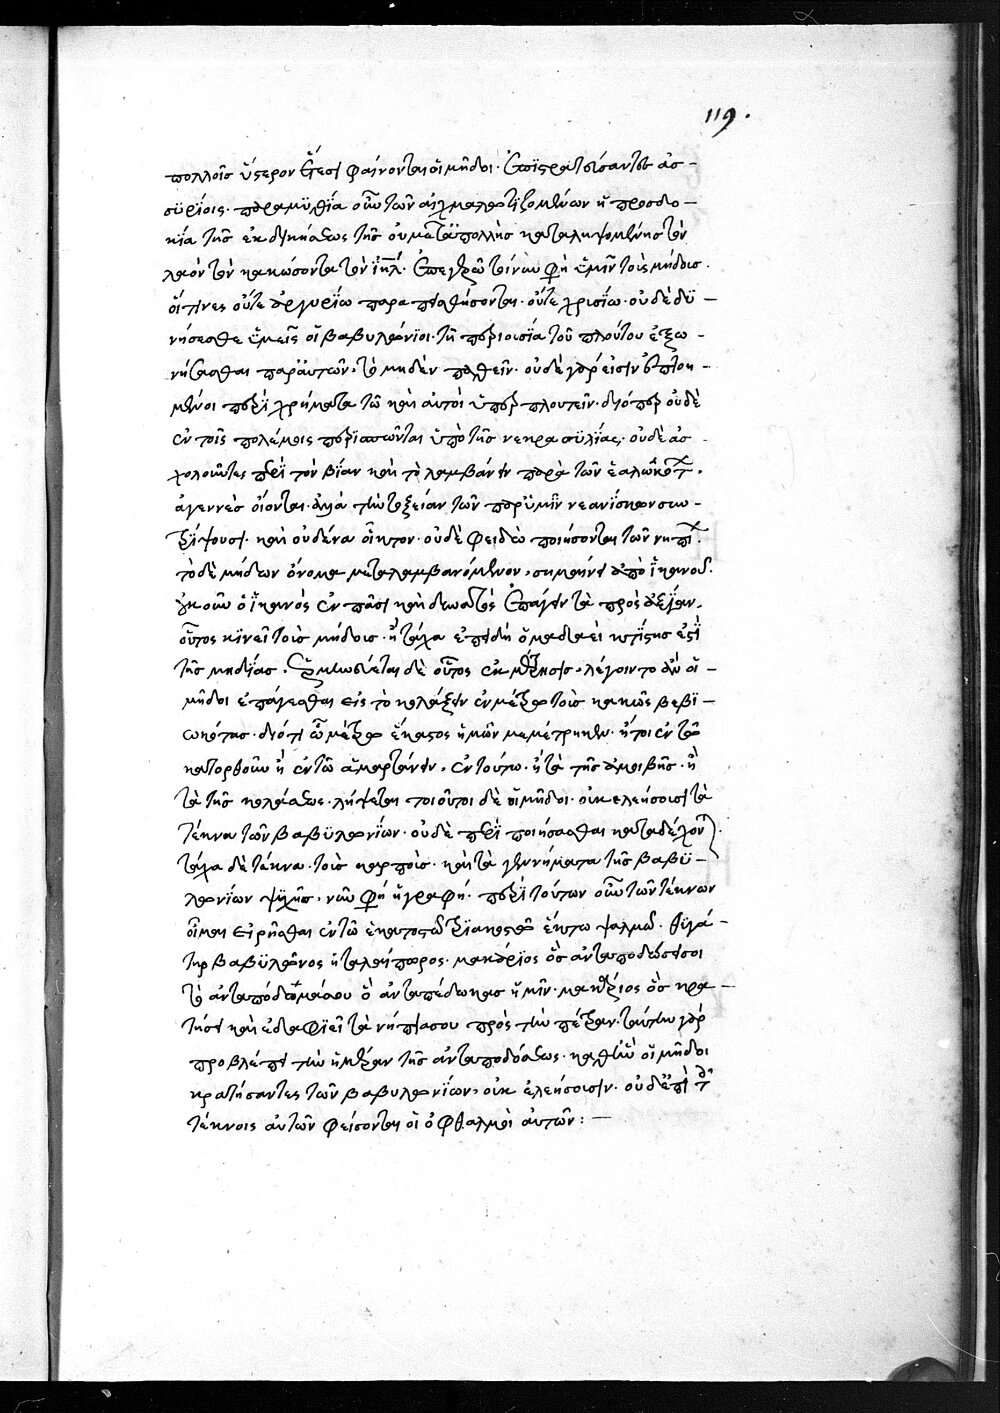 119.
πολλοῖς ὕστερον ἔτεσι φαίνονται οἱ μῆδοι. ἐπιστρατεύσαντες ἀσ-
συρίοις. παραμυθία οὖν τῶν αἰχμαλωτιζομένων ἡ προσδο-
κία τῆς ἐκδικήσεως τῆς οὐ μετὰ πολλῆς καταληψομένης τὸν
λαὸν τὸν κακώσοντα τὸν ἰηλ. ἐπεγερῶ τοίνυν φη ὑμῖν τοὺς μήδους.
οἵτινες οὔτε ἀργυρίω παραπεισθήσονται. οὔτε χρυσίω. οὐδὲ δυ-
νήσεσθε ὑμεῖς οἱ βαβυλώνιοι. τῇ περιουσία τοῦ πλούτου ἐξω-
νήσασθαι παρ' αὐτῶν, τὸ μηδὲν παθεῖν. οὐδὲ γάρ εἰσιν ἐπτοη-
μένοι περὶ χρήματα τῶ καὶ αὐτοὶ ὑπερπλουτεῖν. διόπερ οὐδὲ
ἐν τοῖς πολέμοις περισπῶνται ὑπὸ τῆς νεκροσυλίας. οὐδὲ ἀσ-
χολοῦντες περὶ τὸν βίον καὶ τὸ λαμβάνειν παρὰ τῶν ἑαλωκότ.
ἀγεννὲς οἴονται. ἀλλὰ τὴν τοξείαν τῶν παρ' ὑμῖν νεανίσκων συν-
τρίψουσι. καὶ οὐδένα οἶκτον. οὐδὲ φειδὼ ποιήσονται τῶν νηπί.
τὸ δὲ μήδων ὄνομα μεταλαμβανόμενον, σημαίνει ἀπὸ ἱκανοῦ.
οὐκοῦν ὁ ἱκανὸς ἐν πᾶσι καὶ δυνατὸς ἐπάγειν τὰ πρὸς ἀξίαν,
οὗτος κινεῖ τοὺς μήδους. ἢ τάχα ἐπειδὴ ὁ μαδαεὶ κτίστης ἐστὶ
τῆς μηδίας. ἑρμηνεύεται δὲ οὗτος ἐκ μετρήσεως. λέγοιντο ἂν οἱ
μῆδοι ἐπάγεσθαι εἰς τὸ κολάζειν ἐν μέτρω τοὺς κακῶς βεβι-
ωκότας. διότι ὧ μέτρω ἕκαστος ἡμῶν μεμέτρηκεν. ἤτοι ἐν τῶ
κατορθοῦν ἢ ἐν τῶ ἁμαρτάνειν, ἐν τούτω. ἢ τὰ τῆς ἀμοιβῆς. ἢ
τὰ τῆς κολάσεως. λήψεται τοιοῦτοι δὲ οἱ μῆδοι. οὐκ ἐλεήσουσι τὰ
τέκνα τῶν βαβυλωνίων. οὐδὲ περιποιήσασθαι καταδέχον
τάχα δὲ τέκνα. τοὺς καρποὺς. καὶ τὰ γεννήματα τῆς βαβυ-
λωνίων ψυχῆς, νῦν φη ἡ γραφή. περὶ τούτων οὖν τῶν τέκνων
οἶμαι εἰρῆσθαι ἐν τῶ ἑκατοστῶ τριακοστῶ ἕκτω ψαλμῶ. θυγά-
τηρ βαβυλῶνος ἡ ταλαίπωρος. μακάριος ὃς ἀνταποδώσει σοι
τὸ ἀνταπόδομά σου ὃ ἀνταπέδωκας ἡμῖν. μακάριος ὃς κρα-
τήσει καὶ ἐδαφιεῖ τὰ νήπιά σου πρὸς τὴν πέτραν. ταύτην γὰρ
προβλέπει τὴν ἡμέραν τῆς ἀνταποδόσεως. καθ' ἣν οἱ μῆδοι
κρατήσαντες τῶν βαβυλωνίων, οὐκ ἐλεήσουσιν. οὐδὲ ἐπὶ τοῖς
τέκνοις αὐτῶν φείσονται οἱ ὀφθαλμοὶ αὐτῶν: —